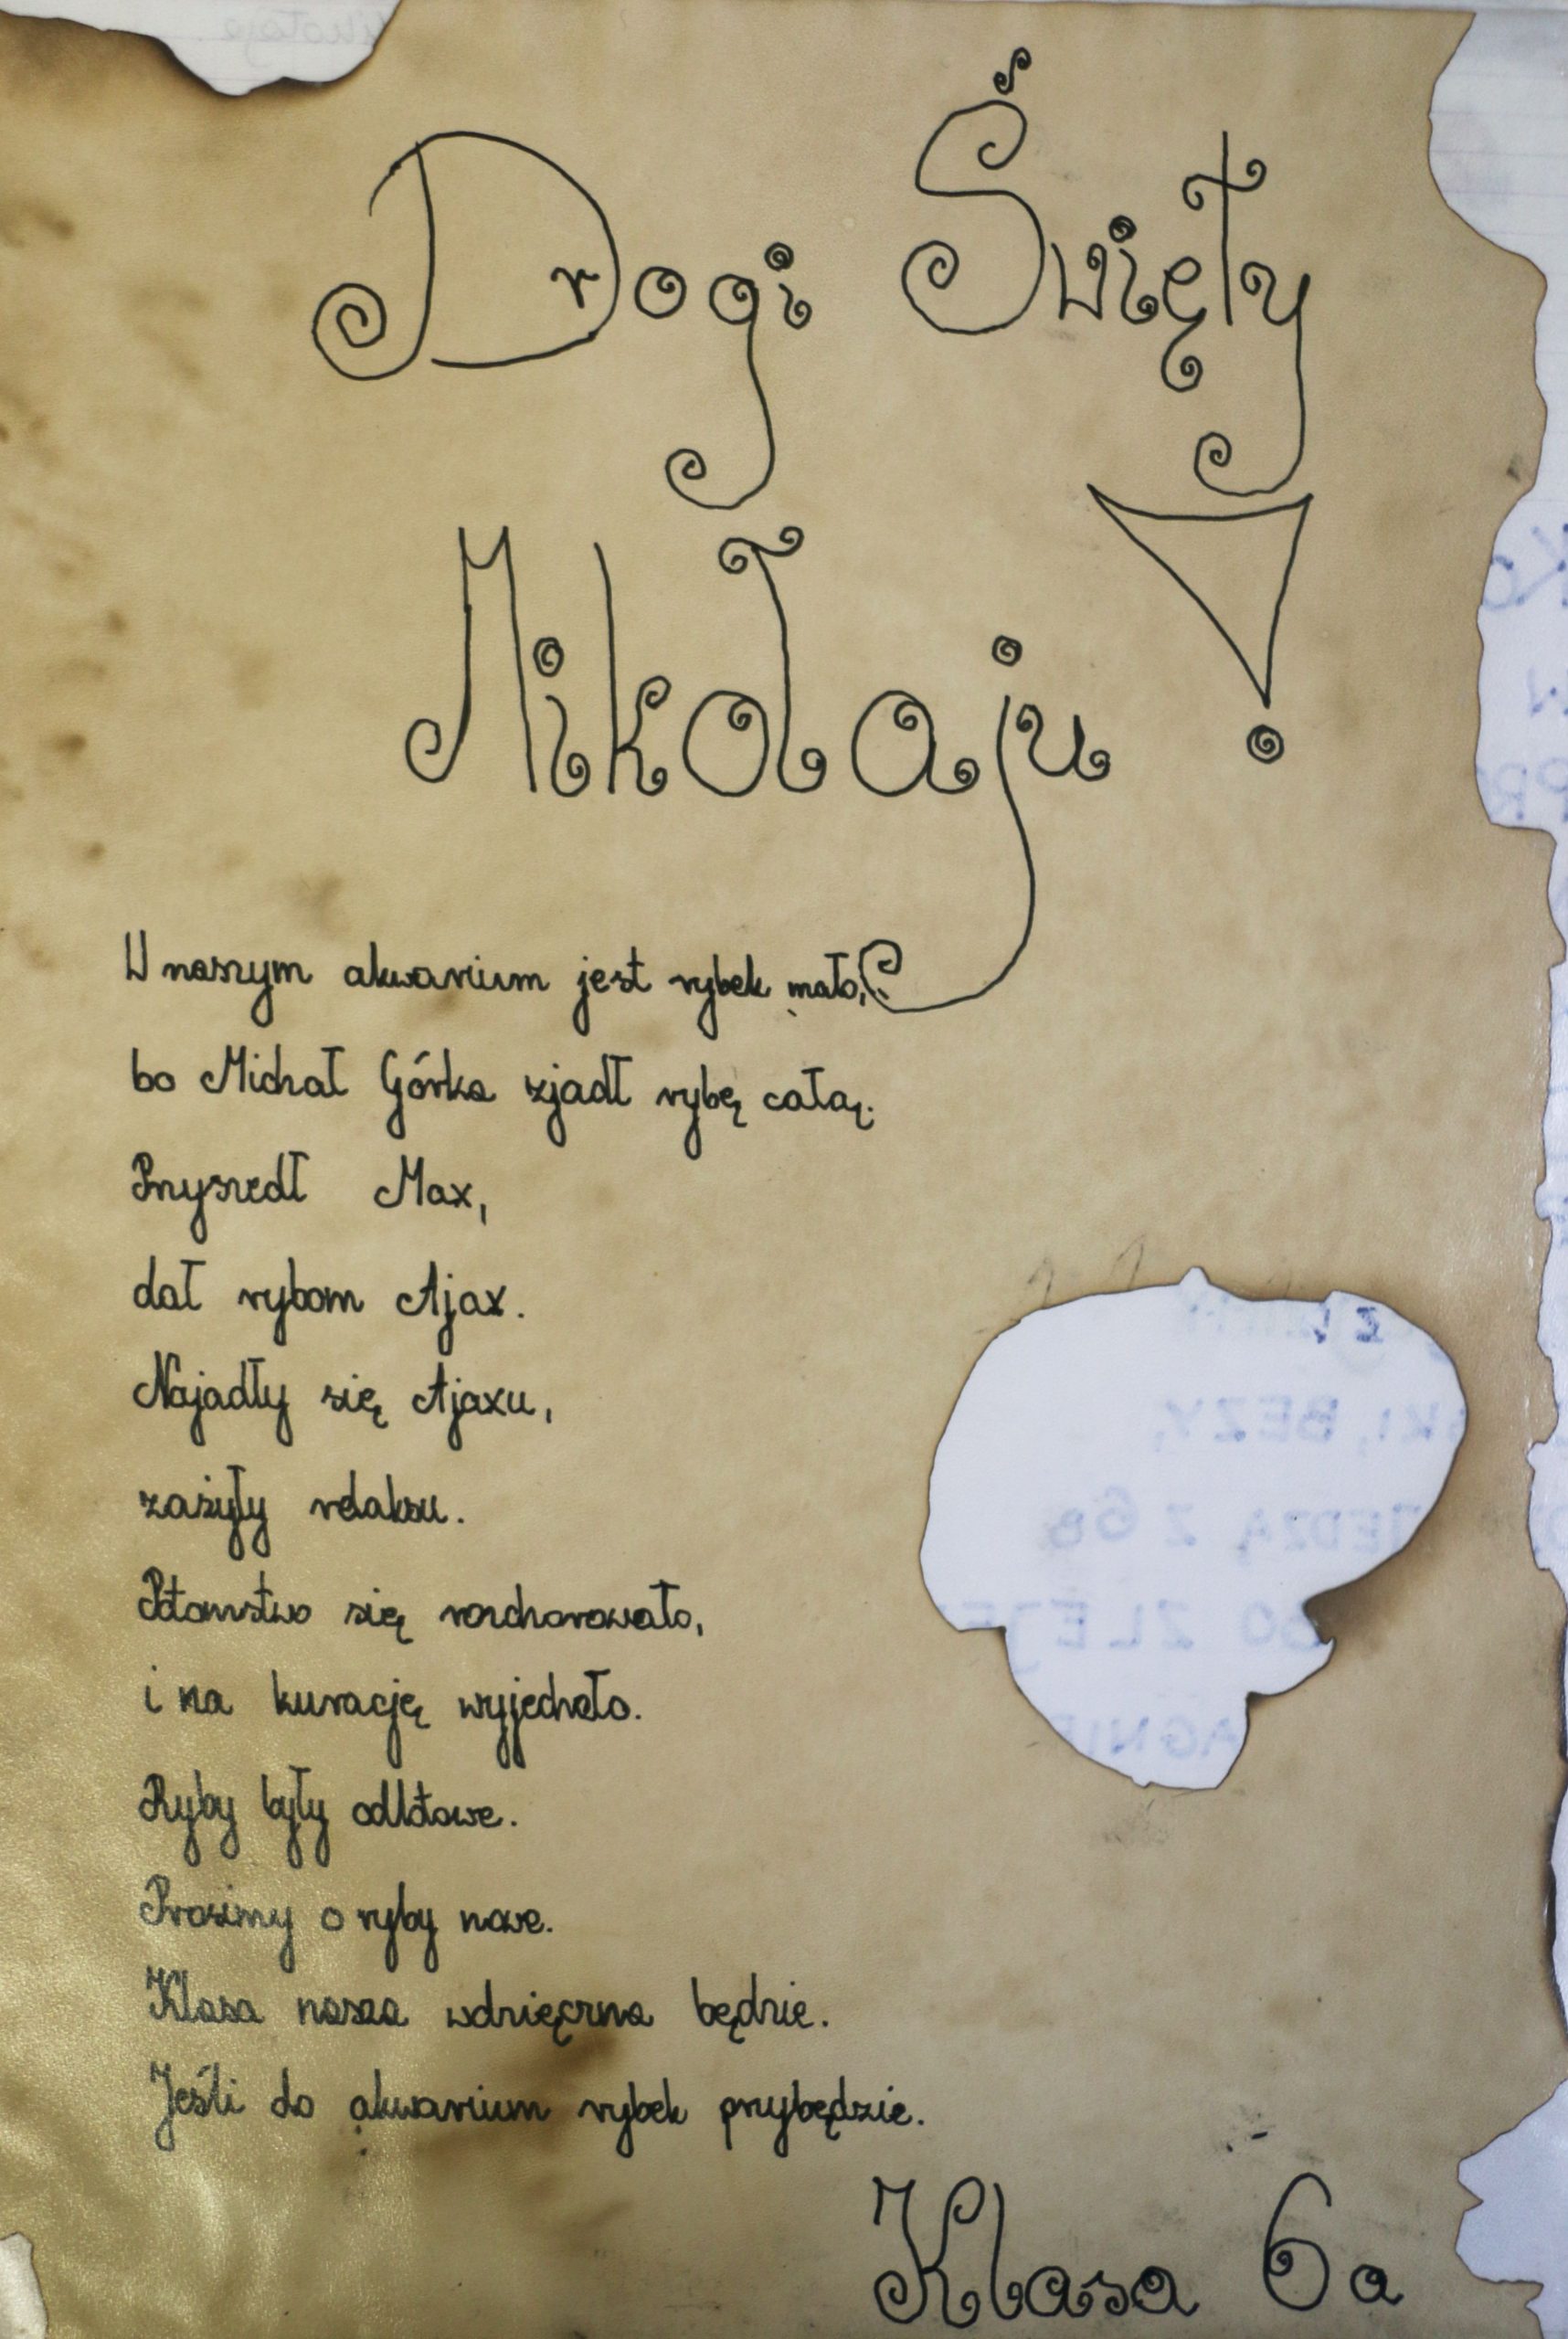 Drogi Święty
Mikołaju!
W naszym akwarium jest rybek mało,
bo Michał Górka zjadł rybę całą.
Przyszedł Max,
dał rybom Ajax.
Najadły się Ajaxu,
zażyły relaksu.
Potomstwo się rozchorowało,
i na kurację wyjechało.
Ryby były odlotowe.
Prosimy o ryby nowe.
Klasa nasza wdzięczna będzie.
Jeśli do akwarium rybek przybędzie.
Klasa 6a